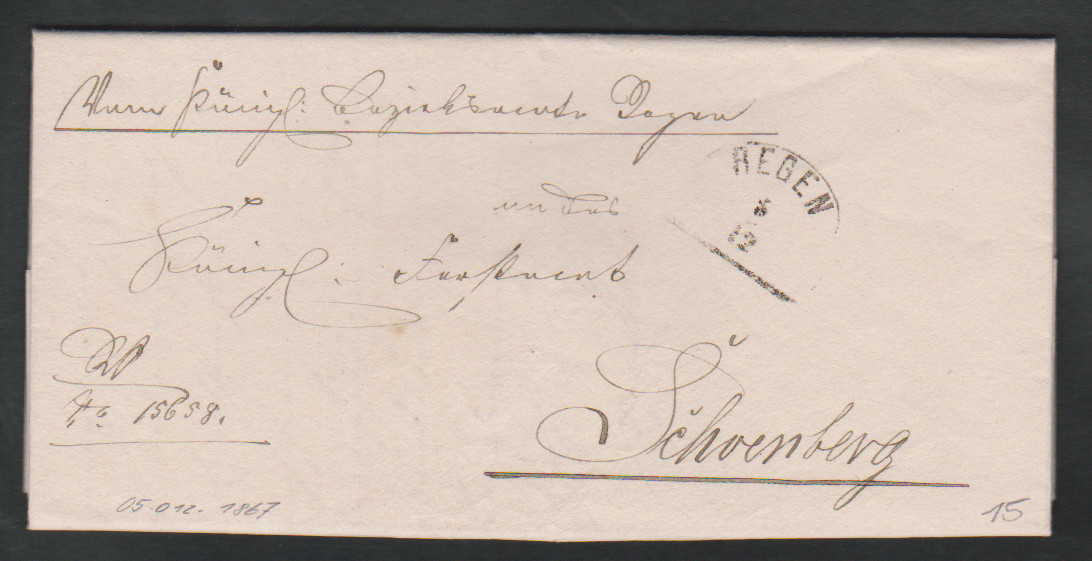 Vom Königl: Bezirksamte Regen
REGEN
5
12
an das
Königl: Forstamt
No. 15658.
Schoenberg
05.012. 1867
15